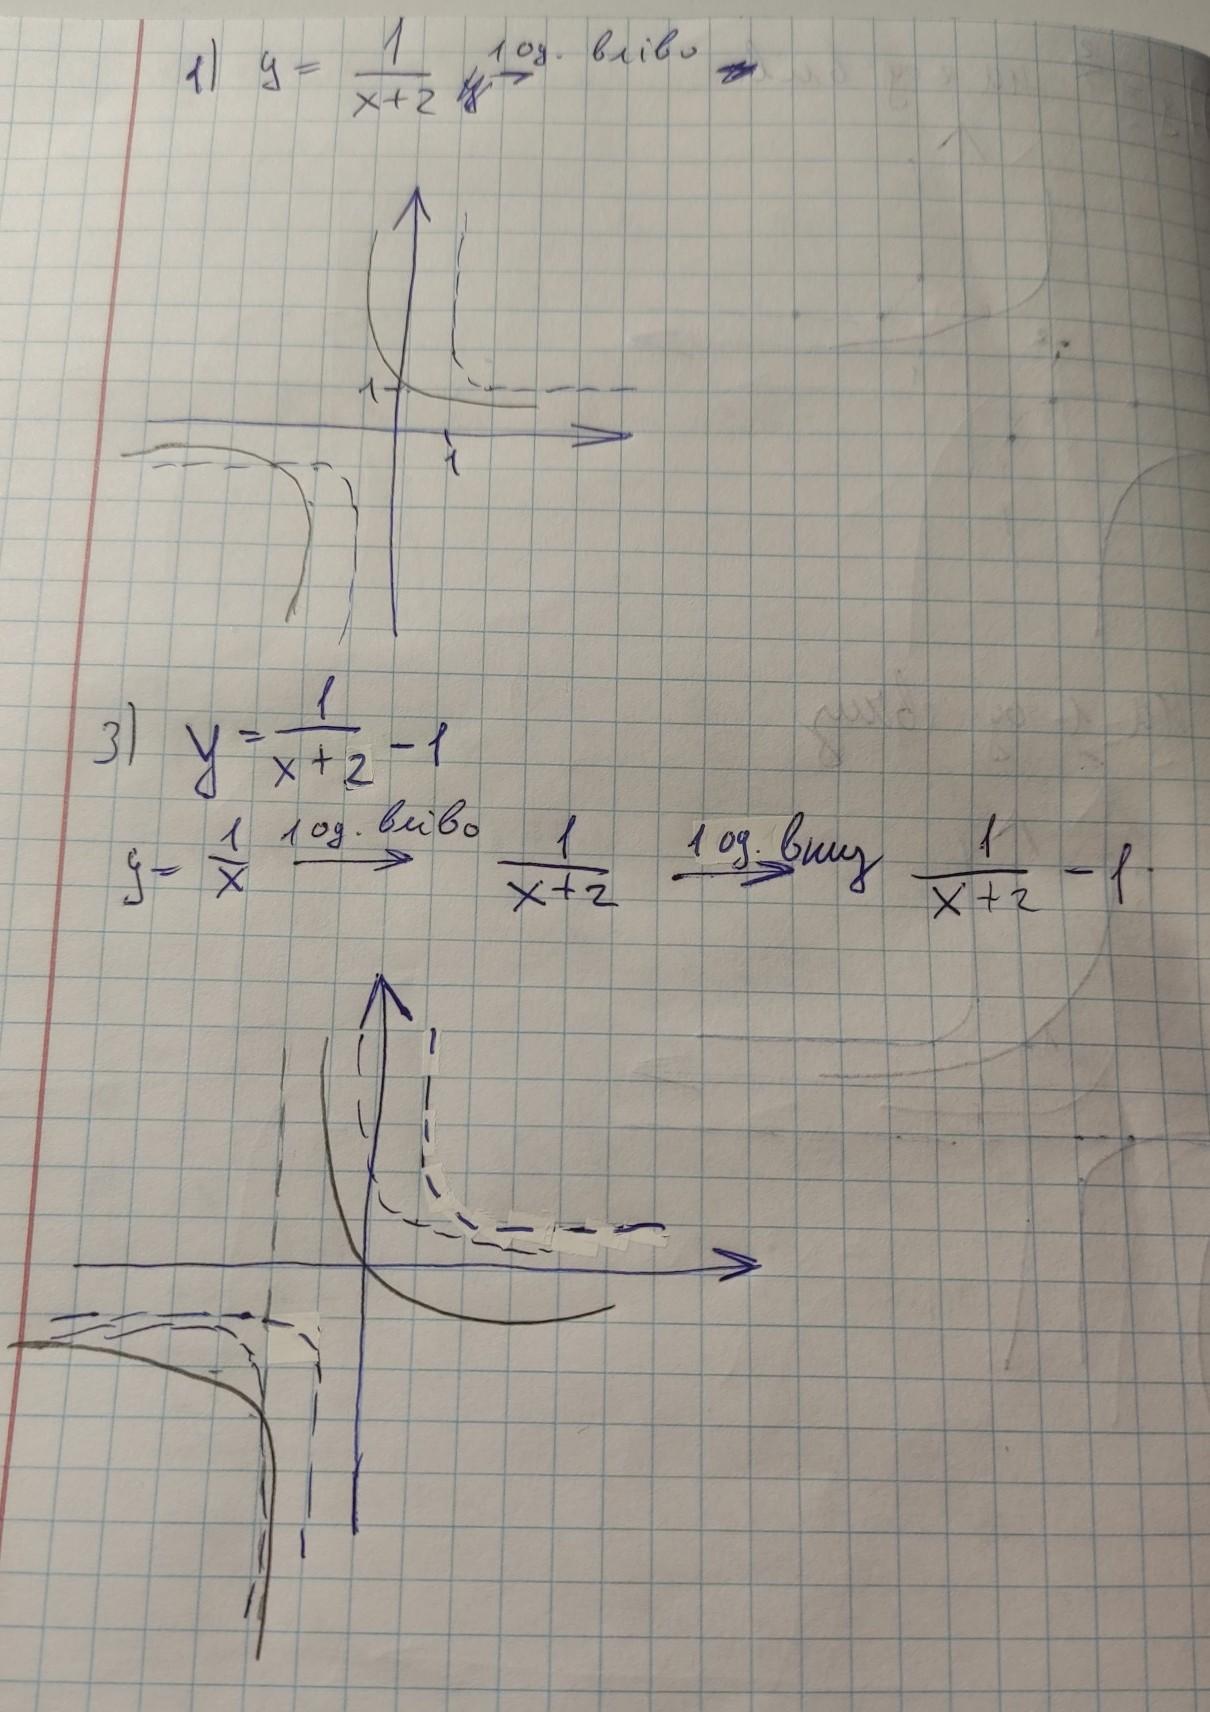 1) y = 1/(x+2) → 1 од. вліво
1
1
3) y = 1/(x+2) - 1
y = 1/x 1 од. вліво → 1/(x+2) 1 од. вниз → 1/(x+2) - 1